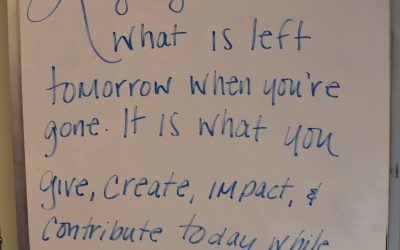 What is left
tomorrow when you're
gone. It is what you
give, create, impact, &
contribute today while